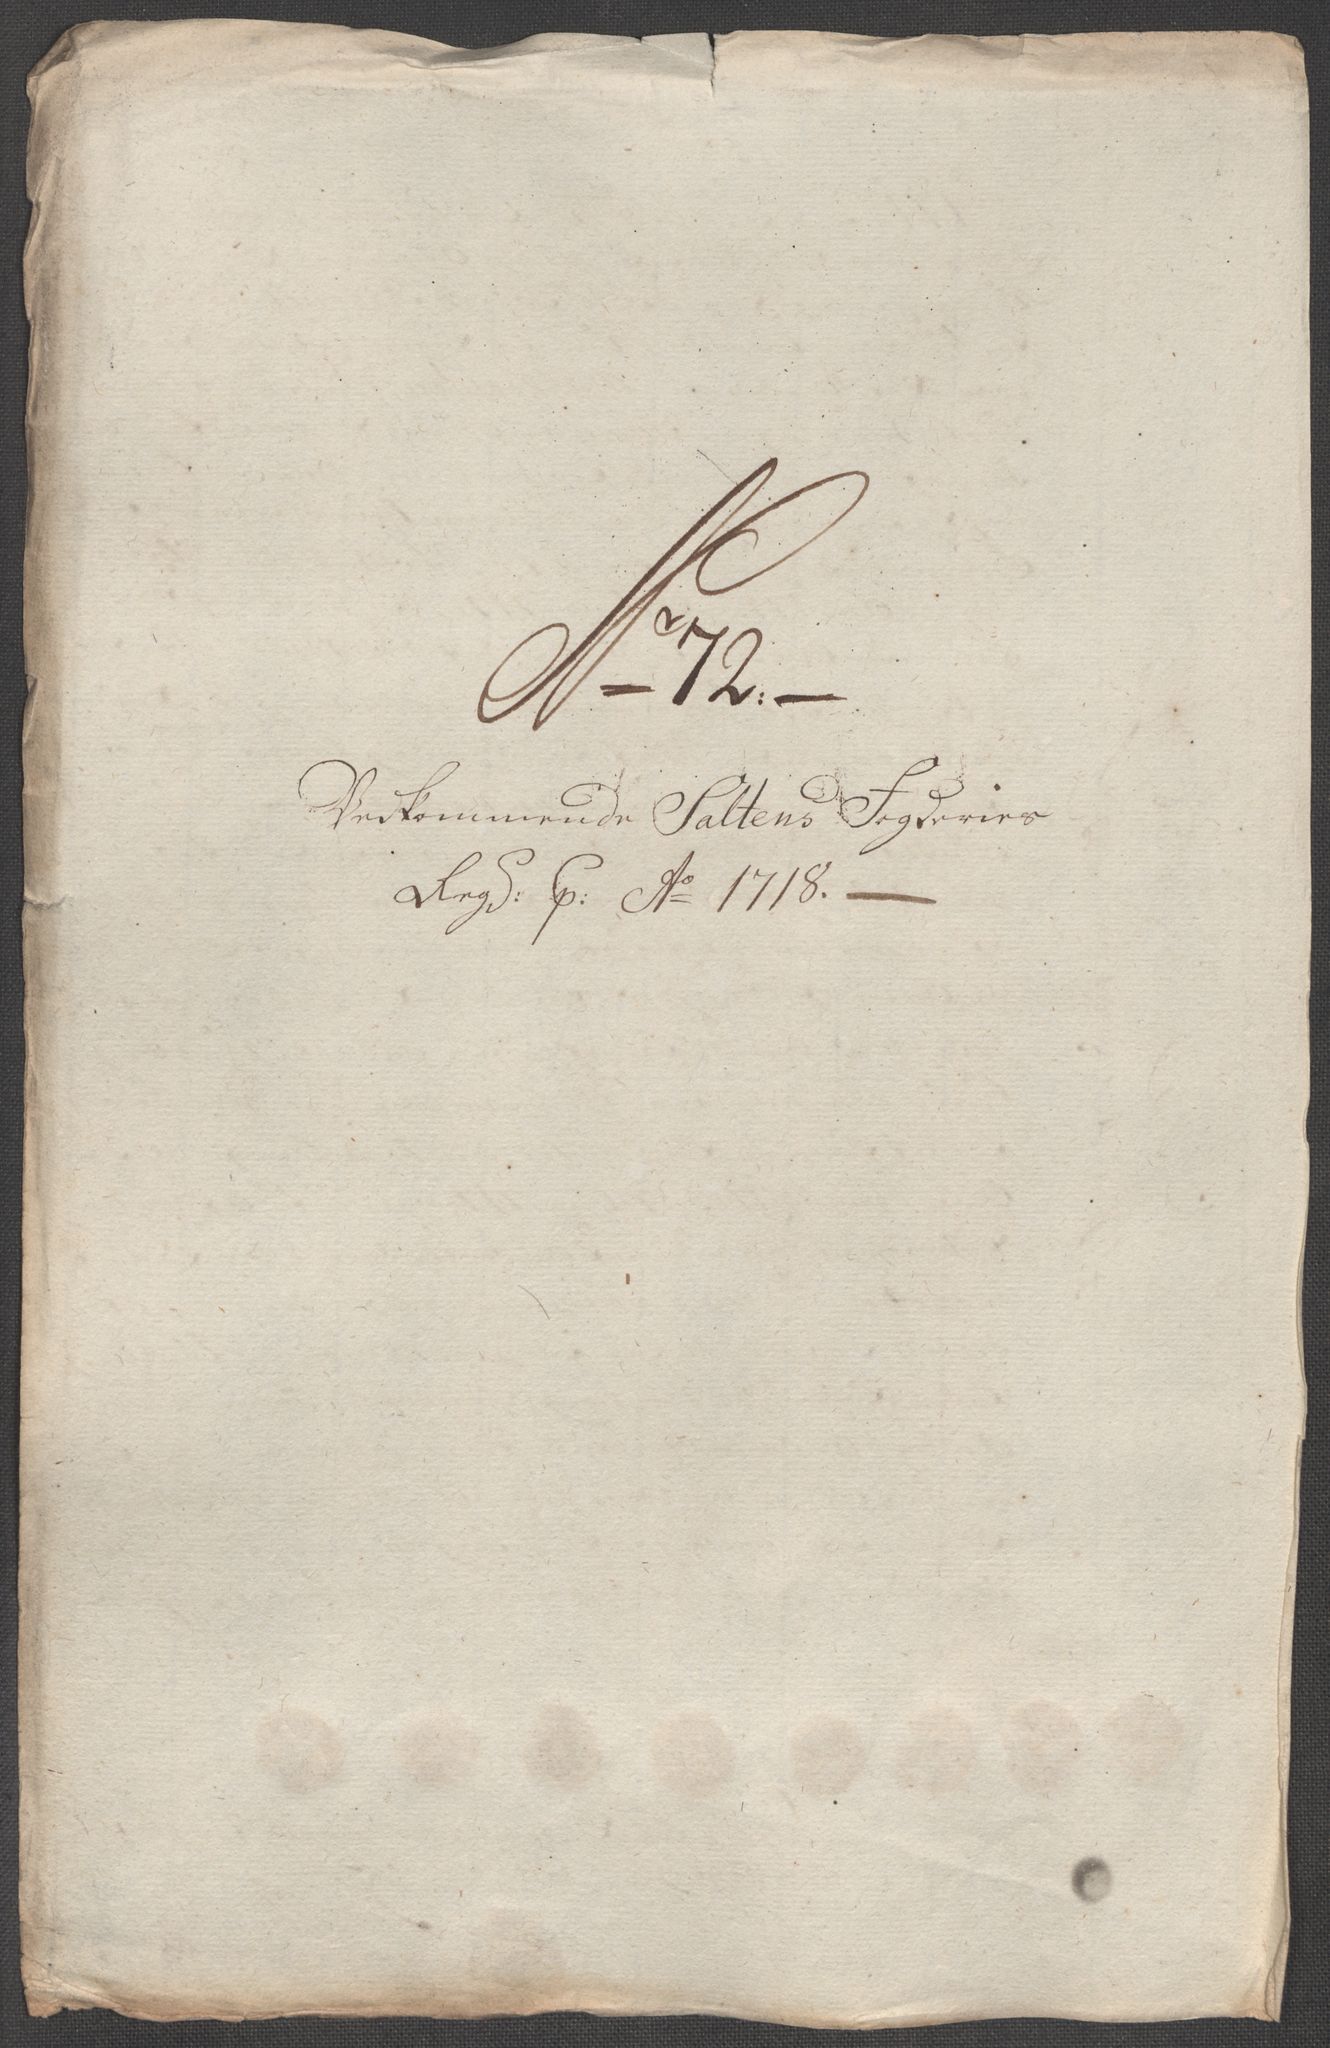 Nr 72. —
Vedkommende Saltens Fogderies
Regd: p: Ao 1718. —